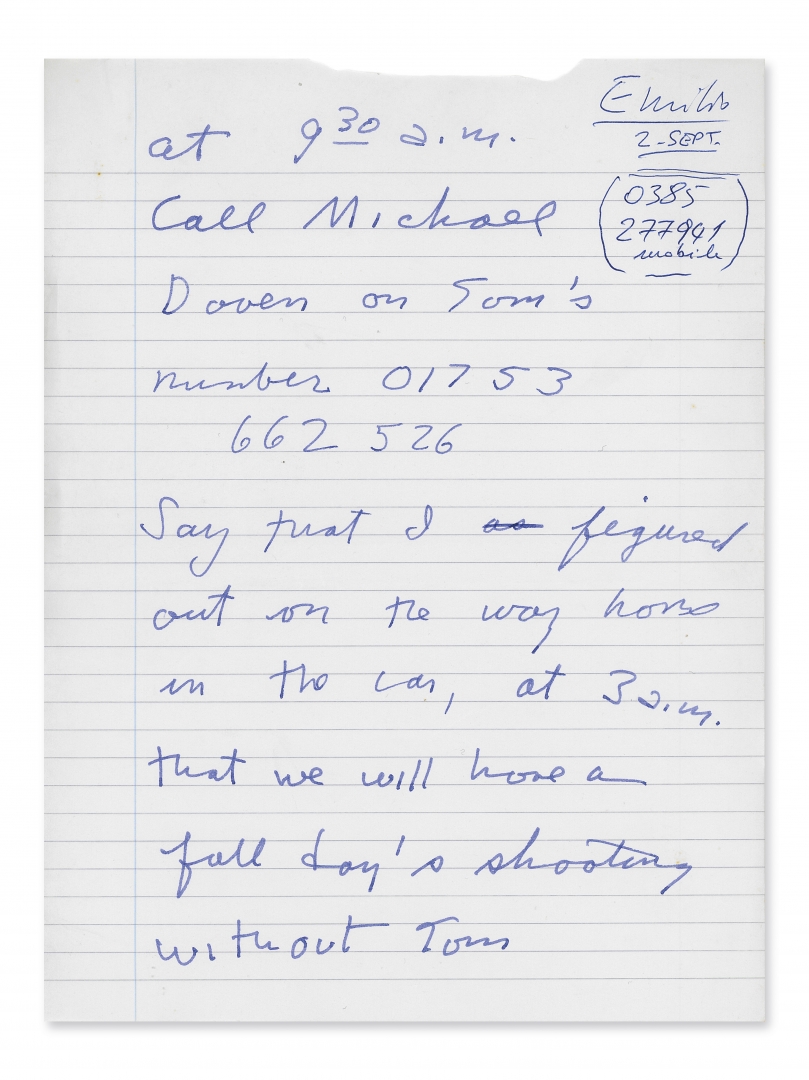 Emilio
2-SEPT.
(0385
277941
mobile)
at 9 30 a.m.
Call Michael
Doven on Tom's
number 01753
662 526
Say that I figured
out on the way home
in the car, at 3 a.m.
that we will have a
full day's shooting
without Tom